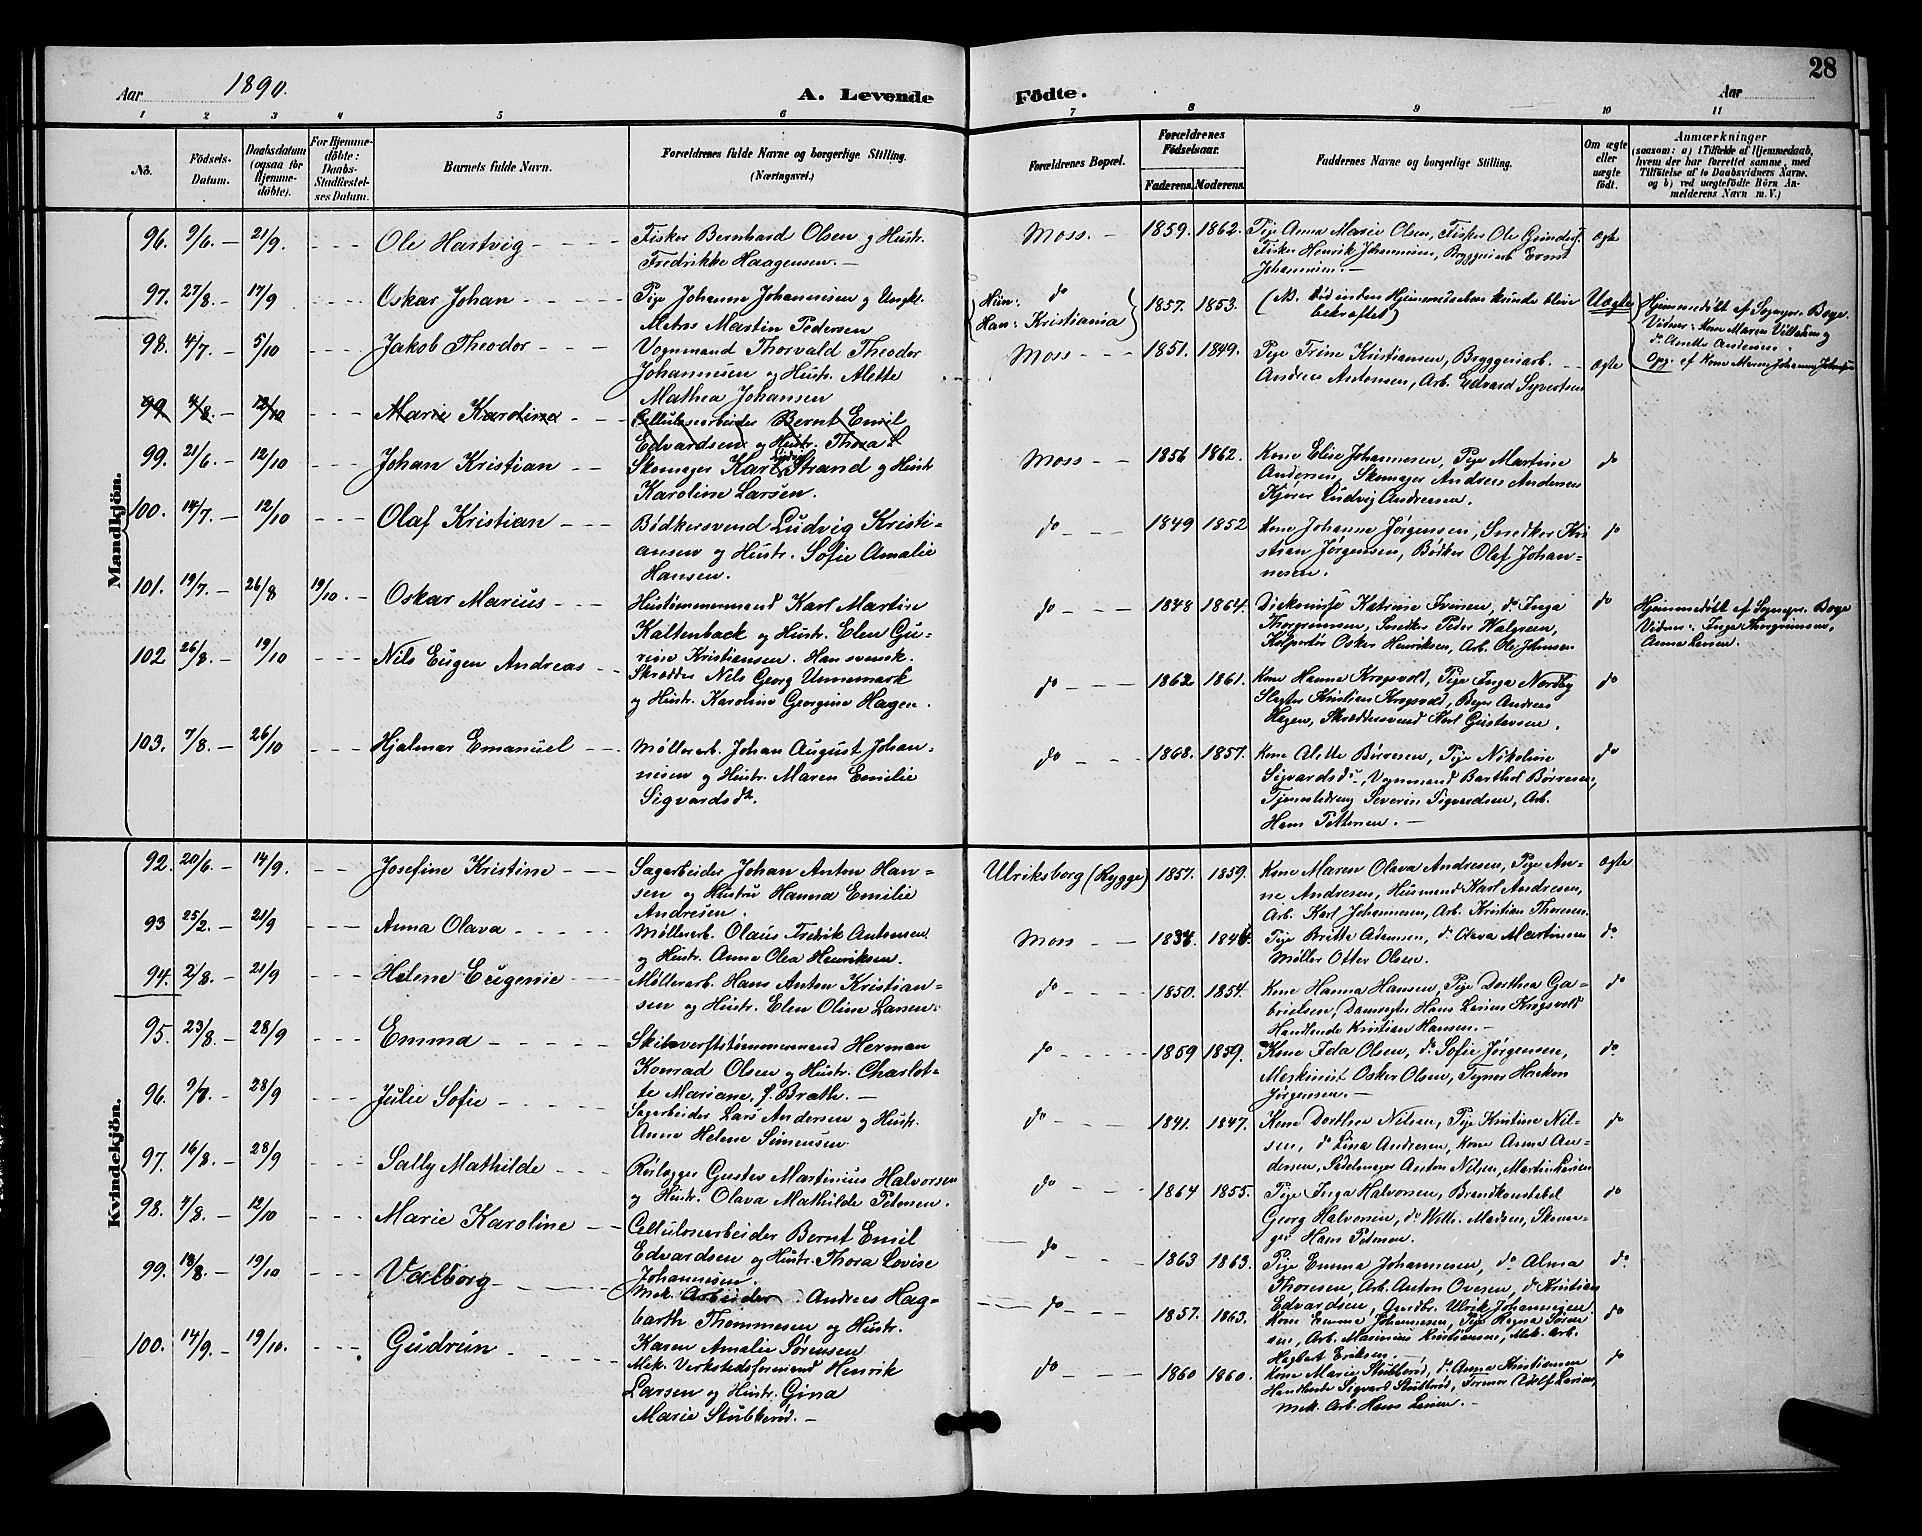 28
Aar 1890.
A. Levende Födte.
Aar
1 2 3 4 5 6 7 8 9 10 11
No.
Födsels-Datum.
Daabsdatum (ogsaa for Hjemmedöbte).
For Hjemmedöbte: Daabs-Stadfæstelses Datum.
Barnets fulde Navn.
Forældrenes fulde Navne og borgerlige Stilling. (Næringsvei.)
Forældrenes Bopæl.
Forældrenes Födselsaar.
Faderens. Moderens.
Faddernes Navne og borgerlige Stilling.
Om ægte eller uægte födt.
Anmærkninger
(saasom: a) i Tilfælde af Hjemmedaab, hvem der har forrettet samme, med Tilföielse af to Daabsvidners Navne. og b) ved uægtefödte Börn Anmelderens Navn m. V.)
Mandkjön.
96. 9/6. — 21/9. - - - Ole Hartvig - - - -
Fisker Bernhard Olsen og Hustr.
Fredrikke Haagensen. —
Moss. — 1859. 1862.
Pige Anna Marie Olsen, Fisker Ole
Fisker Henrik Johannesen, Bryggeriarb. Ernst
Johannesen. —
Ægte
97. 27/8. — 17/9 - - - Oskar Johan - - - -
Pige Johanne Johannesen og Ungkl.
Matros Martin Pedersen
Hun: do
Han: Kristiania
1857. 1853.
(NB. Död inden Hjemmedaaben kunde blive
bekræftet)
Uægte
Hjemmedöbt af Sognepr. Boye.
Vidner: Kone Maren &
do Anette Andersen.
Opg. af Kone Maren Johanne
98. 4/7. — 5/10 - - - Jakob Theodor - - -
Vognmand Thorvald Theodor
Johannesen og Hustr. Alette
Mathea Johansen
Moss - - - 1851. 1849.
Pige Trine Kristiansen, Bryggeriarb.
Andreas Antonsen, Arb. Edvard Syvertsen
Ægte
99 4/8. — 12/10 - - - Marie Karoline - -
Cellulosearbeider Bernt Emil
Edvardsen og Hustr. Thora L
99. 21/6. — 12/10 - - - Johan Kristian - -
Skomager Karl Strand og Hustr
Karoline Larsen.
Moss - - 1856 1862.
Kone Elise Johannesen, Pige Martine
Andersen, Skomager Andreas Andersen
Kjører Ludvig Andreasen.
do
100. 14/7. — 12/10 - - - Olaf Kristian - - -
Bödkersvend Ludvig Kristi-
ansen og Hustr. Sofie Amalie
Hansen.
do - - - 1849 1852
Kone Johanne Jørgensen, Snedker Kri
stian Jørgensen, Bödker Olaf Johan-
nesen.
do
101. 19/7. — 26/8 19/10. - - Oskar Marius - - -
Hustømmermand Karl Martin
Kaltenback og Hustr. Elen Gu-
rine Kristiansen. Han svensk.
do - - - 1848 1864.
Diakonisse Katrine Iversen, do Inga
Thorgrimsen, Snedker Peder Walgreen,
Kolportør Oskar Henriksen, Arb. Ole Johnsen
do
Hjemmedöbt af Sognepr. Boye
Vidner: Inga Thorgrimsen,
Anna Larsen.
102 26/8. — 19/10 - - - Nils Eugen Andreas - -
Skrædder Nils Georg Unnemark
og Hustr. Karoline Georgine Hagen.
do - - - 1862 1861.
Kone Hanna Krogsvold, Pige Inga Nordby
Slagter Kristian Krogsvold, Bager Andreas
Hagen, Skræddersvend Karl Gustavsen.
do
103. 7/8. — 26/10 - - - Hjalmar Emanuel - -
Møllerarb. Johan August Johan-
nesen og Hustr. Maren Emilie
Sigvardsdr.
do - - - 1868. 1857.
Kone Alette Børresen, Pige Nikoline
Sigvardsdr, Vognmand Barthol Børresen,
Tjenestedreng Severin Sigvardsen, Arb.
Hans Pettersen. —
do
Kvindekjön.
92. 20/6. — 14/9. - - - Josefine Kristine - - -
Sagarbeider Johan Anton Han-
sen og Hustru Hanna Emilie
Andresen.
Ulriksborg (Rygge) 1857. 1859.
Kone Maren Olava Andresen, Pige An-
ne Andresen, Husmand Karl Andresen,
Arb. Karl Johannesen, Arb. Kristian Thoresen.
Ægte
93 25/2. — 21/9 - - - Anna Olava - - - -
Møllerarb. Olaus Fredrik Antonsen
og Hustr. Anne Olea Henriksen.
Moss - - 1838. 1846.
Pige Britte Adamsen, do Olava Martinsen
Møller Otter Olsen.
do.
94. 2/8. — 21/9 - - - Helene Eugenie - - -
Møllerarb. Hans Anton Kristian-
sen og Hustr. Elen Oline Larsen.
do - - - 1850. 1854.
Kone Hanna Hansen, Pige Dorthea Ga-
brielsen, Hans Larsen Krogsvold
Handlende Kristian Hansen. —
do
95. 23/8. — 28/9 - - - Emma - - - - -
Skibsverftstømmermand Herman
Konrad Olsen og Hustr. Charlot-
te Mariane, f. Brath. —
do - - - - 1859 1859.
Kone Ida Olsen, do Sofie Jørgensen,
Maskinist Oskar Olsen, Hakon
Jørgensen. —
do.
96. 9/8. — 28/9 - - - Julie Sofie - - - -
Sagarbeider Lars Andersen og Hustr.
Anne Helene Simensen.
do - - - 1841. 1847.
Kone Dorthea Nilsen, Pige Kristine Nil-
sen, do Lina Andresen, Kone Anna An-
dersen, Sadelmager Anton Nilsen, Martin Larsen
do
97. 16/8. — 28/9 - - - Sally Mathilde - - -
Rørlægger Gustav Martinius Halvorsen
og Hustr. Olava Mathilde Petersen.
do - - - 1864 1855.
Pige Inga Halvorsen, Brandkonstabel
Georg Halvorsen, do Madsen, Skoma-
ger Hans Petersen.
do
98. 4/8. — 12/10 - - - Marie Karoline - -
Cellulosearbeider Bernt Emil
Edvardsen og Hustr. Thora Lovise
Johannesen.
do - - 1863 1863.
Pige Emma Johannesen, do Alma
Thoresen, Arb. Anton Ovesen, do Kristian
Edvardsen, Gaardbr. Ulrik Johannesen
do.
99. 18/8. — 19/10 - - - Valborg - - - -
Mek. Arbeider Andreas Hag-
barth Thommesen og Hustr.
Karen Amalie Sørensen
do - - 1857. 1863.
Kone Emma Johannesen, Pige Hagna Søren
sen, Arb. Marinius Kristiansen, Mek. Arb.
Hagbart Eriksen. —
do
100. 14/9. — 19/10. - - - Gudrun - - - -
Mek. Verkstedsformand Henrik
Larsen og Hustr. Gina
Marie Stubberød. —
do - - - 1860 1860.
Kone Marie Stubberød, do Anna Kristiansen
Handlende Sigvard Stubberød, Former Adolf Larsen,
Mek. Arb. Hans Larsen. —
do